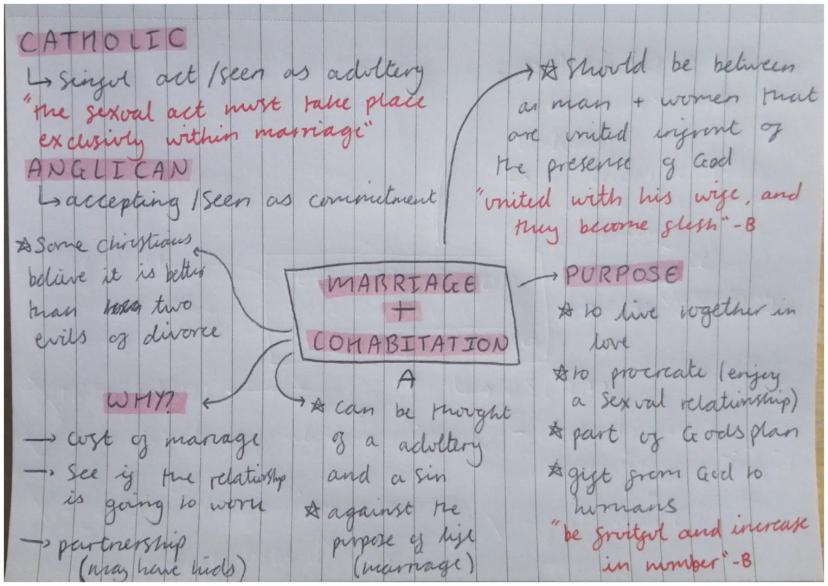 CATHOLIC
↳ Sinful act / seen as adultery
"the sexual act must take place
exclusivly within marriage"
ANGLICAN
↳ accepting / Seen as commitment
☆ Some christians
believe it is better
than two
evils of divorce
WHY?
→ cost of marriage
→ See if the relationship
is going to work
→ partnership
(may have kids)
MARRIAGE
+
COHABITATION
A
☆ can be thought
of a adultery
and a sin
☆ against the
purpose of life
(marriage)
☆ Should be between
a man + women that
are united infront of
the presense of God
"united with his wife, and
they become flesh" -B
PURPOSE
☆ to live together in
love
☆ to procreate (enjoy
a sexual relationship)
☆ part of Gods plan
☆ gift from God to
humans
"be fruitful and increase
in number" -B